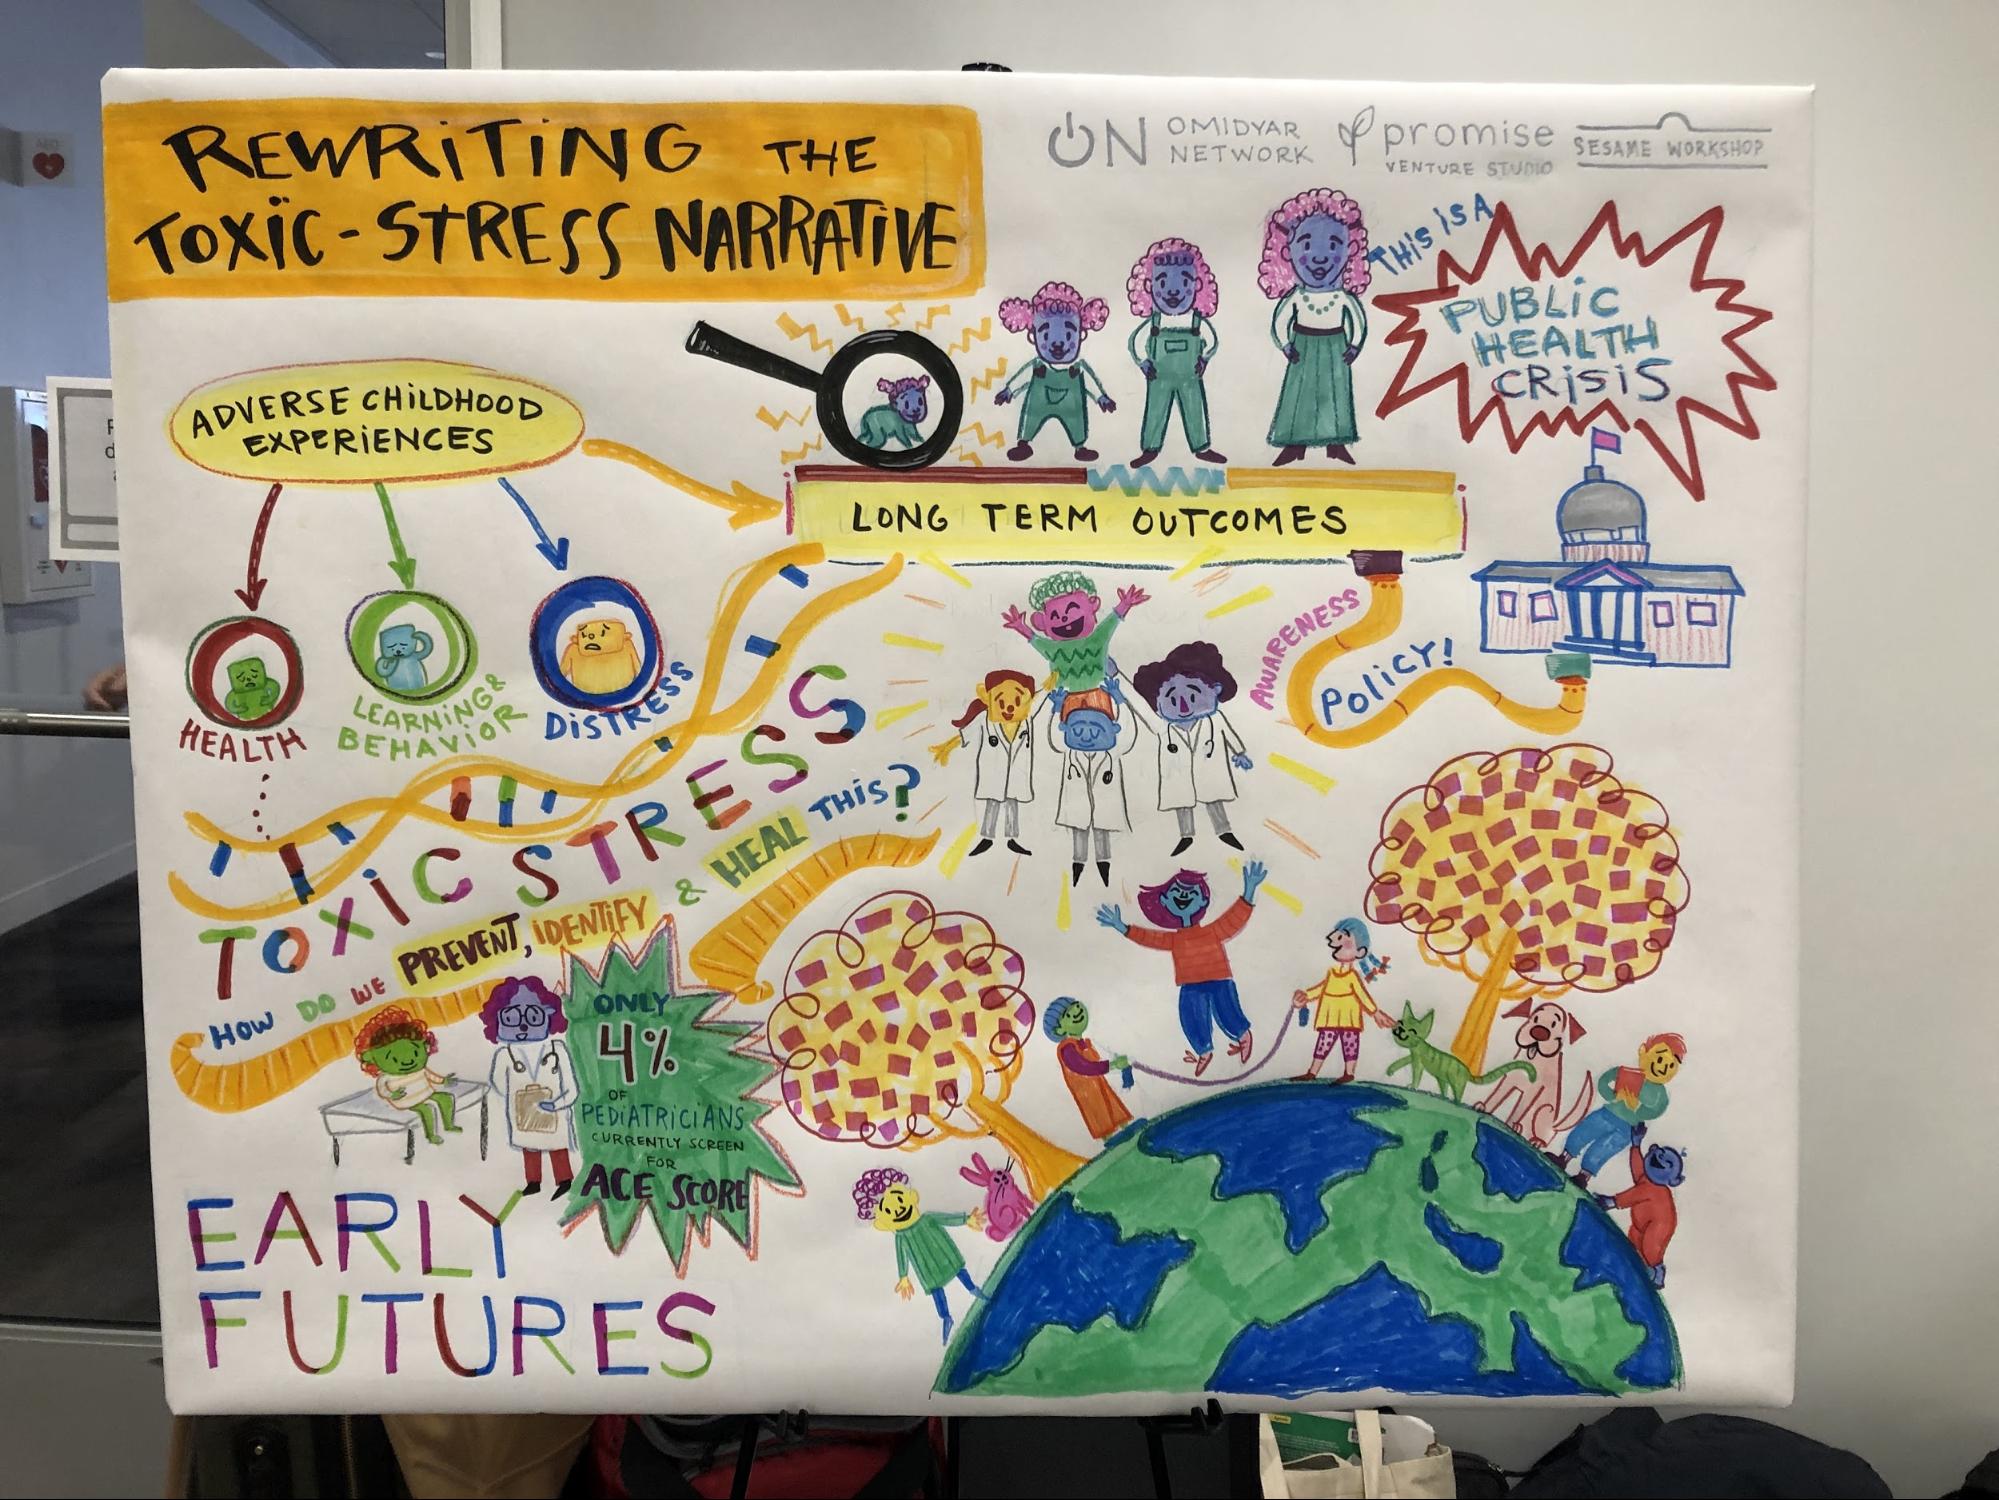 REWRITING THE
TOXIC-STRESS NARRATIVE
ON OMIDYAR
NETWORK
promise
VENTURE STUDIO
SESAME WORKSHOP
THIS IS A
PUBLIC
HEALTH
CRISIS
ADVERSE CHILDHOOD
EXPERIENCES
LONG TERM OUTCOMES
HEALTH
LEARNING &
BEHAVIOR
DISTRESS
AWARENESS
POLICY!
TOXIC STRESS
HOW DO WE PREVENT, IDENTIFY & HEAL THIS?
ONLY
4%
OF
PEDIATRICIANS
CURRENTLY SCREEN
FOR
ACE SCORE
EARLY
FUTURES
AED